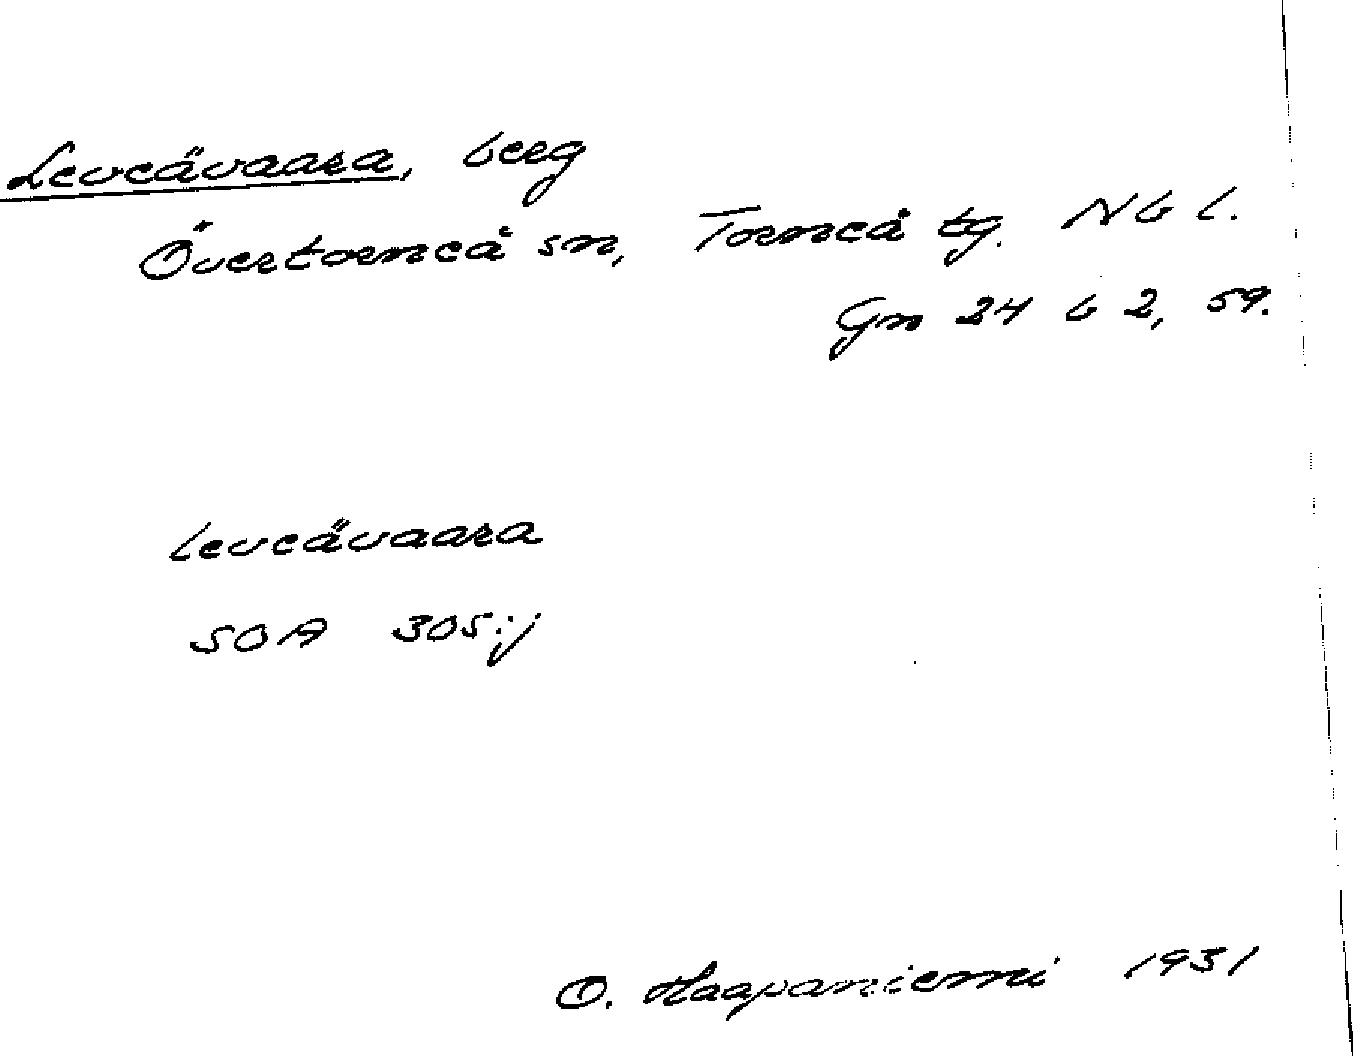 Leveävaara, berg
Övertorneå sn, Torneå tg. Nb l.
Gn 24 b 2, 59.
leveävaara
SOA 305:j
O. Haapaniemi 1931